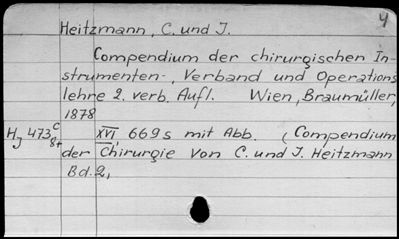 4
Heitzmann, C. und J.
Compendium der chirurgischen In-
strumenten-, Verband und Operations
lehre 2. verb. Aufl. Wien, Braumüller,
1878
Hj 473 c 8+ XVI, 669 s mit Abb. (Compendium
der Chirurgie von C. und J. Heitzmann
Bd. 2,